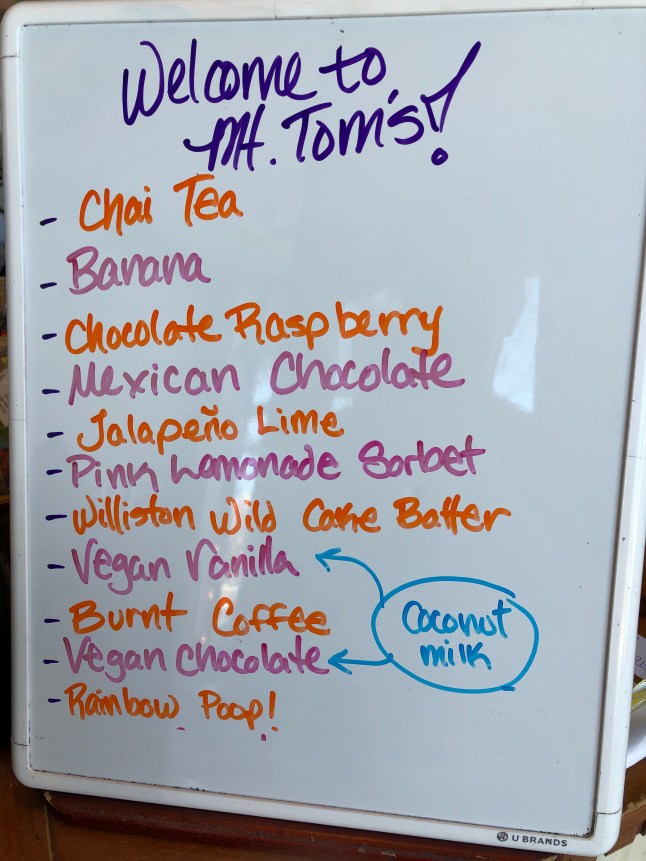 Welcome to
Mt. Tom's!
- Chai Tea
- Banana
- Chocolate Raspberry
- Mexican Chocolate
- Jalapeño Lime
- Pink Lemonade Sorbet
- Williston Wild Cake Batter
- Vegan Vanilla
- Burnt Coffee
- Vegan Chocolate
- Rainbow Poop!
Coconut
milk
U BRANDS